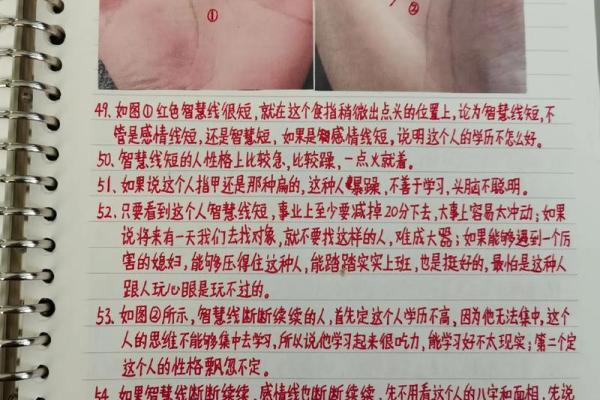 ① ②
49. 如图①红色智慧线很短，就在这个食指稍微出点头的位置上，论为智慧线短，不
管是感情线短，还是智慧短，如果是感情线短，说明这个人的学历不怎么好。
50. 智慧线短的人性格上比较急，比较躁，一点火就着。
51. 如果说这个人指甲还是那种扁的，这种人暴躁，不善于学习，头脑不聪明。
52. 只要看到这个人智慧线短，事业上至少要减掉20分下去，大事上容易太冲动；如果
说将来有一天我们去找对象，就不要找这样的人，难成大器；如果能够遇到一个厉
害的媳妇，能够压得住这种人，能踏踏实实上班，也是挺好的，最怕是这种人
跟人玩心眼是玩不过的。
53. 如图②所示，智慧线断断续续的人，首先定这个人学历不高，因为他无法集中，这个
人的思维不能够集中去学习，所以说他学习起来很吃力，能学习好不太现实；第二个定
这个人的性格飘忽不定。
54. 如果智慧线断断续续，感情线也断断续续，先不用看这个人的八字和面相，先说